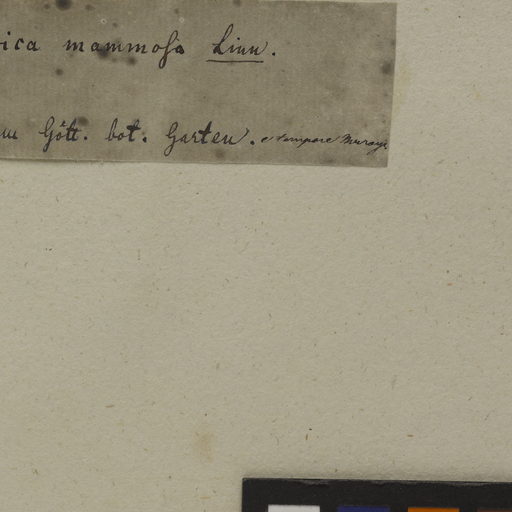 ica mammosa Linn.
m Gött. bot. Garten. e tempore Murray